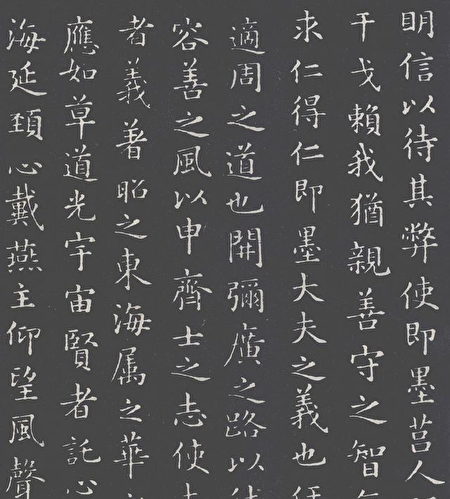 明信以待其弊使即墨莒人
干戈賴我猶親善守之智
求仁得仁即墨大夫之義也
適周之道也開彌廣之路以
容善之風以申齊士之志使
者義著昭之東海属之華
應如草道光宇宙賢者託心
海延頚心戴燕主仰望風聲